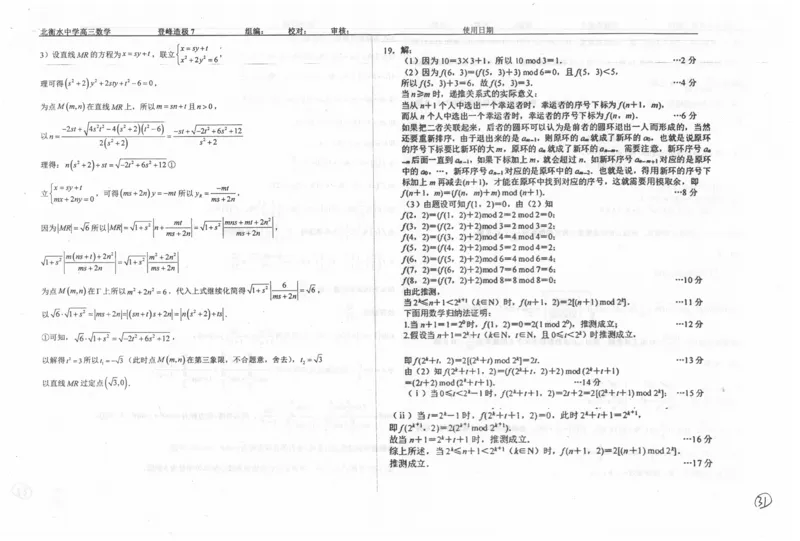 北衡水中学高三数学 登峰造极 7 组编： 校对： 审核： 使用日期
3）设直线 MR 的方程为 x = sy+t，联立 {x = sy+t, x²+2y² = 6,
理可得 (s²+2)y²+2sty+t²-6=0，
为点 M(m,n) 在直线 MR 上，所以 m=sn+t 且 n>0，
以 n = (-2st+√(4s²t²-4(s²+2)(t²-6)))/(2(s²+2)) = (-st+√(-2t²+6s²+12))/(s²+2)
理得：n(s²+2)+st=√(-2t²+6s²+12) ①
立 {x = sy+t, ms+2ny=0，可得 (ms+2n)y=-mt 所以 y_R = -mt/(ms+2n)，
因为 |MR|=√6 所以 |MR|=√(1+s²)|n+mt/(ms+2n)|=√(1+s²)|(mns+mt+2n²)/(ms+2n)|，
√(1+s²)|(m(ns+t)+2n²)/(ms+2n)|=√(1+s²)|(m²+2n²)/(ms+2n)|，
为点 M(m,n) 在 Γ 上所以 m²+2n²=6，代入上式继续化简得 √(1+s²)|6/(ms+2n)|=√6，
以 √6·√(1+s²)=|ms+2n|=|(sn+t)s+2n|=|n(s²+2)+ts|．
①可知，√6·√(1+s²)=√(-2t²+6s²+12)，
以解得 t²=3 所以 t₁=-√3（此时点 M(m,n) 在第三象限，不合题意，舍去），t₂=√3
以直线 MR 过定点 (√3,0)．
19．解：
（1）因为 10=3×3+1，所以 10 mod 3=1． …2 分
（2）因为 f(6，3)=(f(5，3)+3) mod 6=0，且 f(5，3)<5，
所以 f(5，3)+3=6，故 f(5，3)=3． …4 分
当 n≥m 时，递推关系式的实际意义：
当从 n+1 个人中选出一个幸运者时，幸运者的序号下标为 f(n+1，m)，
而从 n 个人中选出一个幸运者时，幸运者的序号下标为 f(n，m)． …6 分
如果把二者关联起来，后者的圆环可以认为是前者的圆环退出一人而形成的，当然
还要重新排序，由于退出来的是 aₘ₋₁，则原环的 aₘ 就成了新环的 a₀，也就是说原环
的序号下标要比新环的大 m，原环的 a₀ 就成了新环的 aₙ₋ₘ，需要注意，新环序号 aₙ
₋ₘ 后面一直到 aₙ₋₁，如果下标加上 m，就会超过 n．如新环序号 aₙ₋ₘ₊₁ 对应的是原环
中的 a₀，…，新环序号 aₙ₋₁ 对应的是原环中的 aₘ₋₂．也就是说，得用新环的序号下
标加上 m 再减去(n+1)，才能在原环中找到对应的序号，这就需要用模取余，即
f(n+1，m)=(f(n，m)+m) mod (n+1)． …8 分
（3）由题设可知 f(1，2)=0，由（2）知
f(2，2)=(f(1，2)+2)mod 2=2 mod 2=0；
f(3，2)=(f(2，2)+2)mod 3=2 mod 3=2；
f(4，2)=(f(3，2)+2)mod 4=4 mod 4=0；
f(5，2)=(f(4，2)+2)mod 5=2 mod 4=2；
f(6，2)=(f(5，2)+2)mod 6=4 mod 6=4；
f(7，2)=(f(6，2)+2)mod 7=6 mod 7=6；
f(8，2)=(f(7，2)+2)mod 8=8 mod 8=0； …10 分
由此推测，
当 2ᵏ≤n+1<2ᵏ⁺¹（k∈N）时，f(n+1，2)=2[(n+1) mod 2ᵏ]． …11 分
下面用数学归纳法证明：
1.当 n+1=1=2⁰时，f(1，2)=0=2(1 mod 2⁰)，推测成立； …12 分
2.假设当 n+1=2ᵏ+t（k∈N，t∈N，且 0≤t<2ᵏ）时推测成立，
即 f(2ᵏ+t，2)=2[(2ᵏ+t) mod 2ᵏ]=2t． …13 分
由（2）知 f(2ᵏ+t+1，2)=(f(2ᵏ+t，2)+2) mod (2ᵏ+t+1)
=(2t+2) mod (2ᵏ+t+1)． …14 分
（i）当 0≤t<2ᵏ-1 时，f(2ᵏ+t+1，2)=2t+2=2[(2ᵏ+t+1) mod 2ᵏ]； …15 分
（ii）当 t=2ᵏ-1 时，f(2ᵏ+t+1，2)=0，此时 2ᵏ+t+1=2ᵏ⁺¹，
即 f(2ᵏ⁺¹，2)=2(2ᵏ⁺¹ mod 2ᵏ⁺¹)．
故当 n+1=2ᵏ+t+1 时，推测成立． …16 分
综上所述，当 2ᵏ≤n+1<2ᵏ⁺¹（k∈N）时，f(n+1，2)=2[(n+1) mod 2ᵏ]，
推测成立． …17 分
31